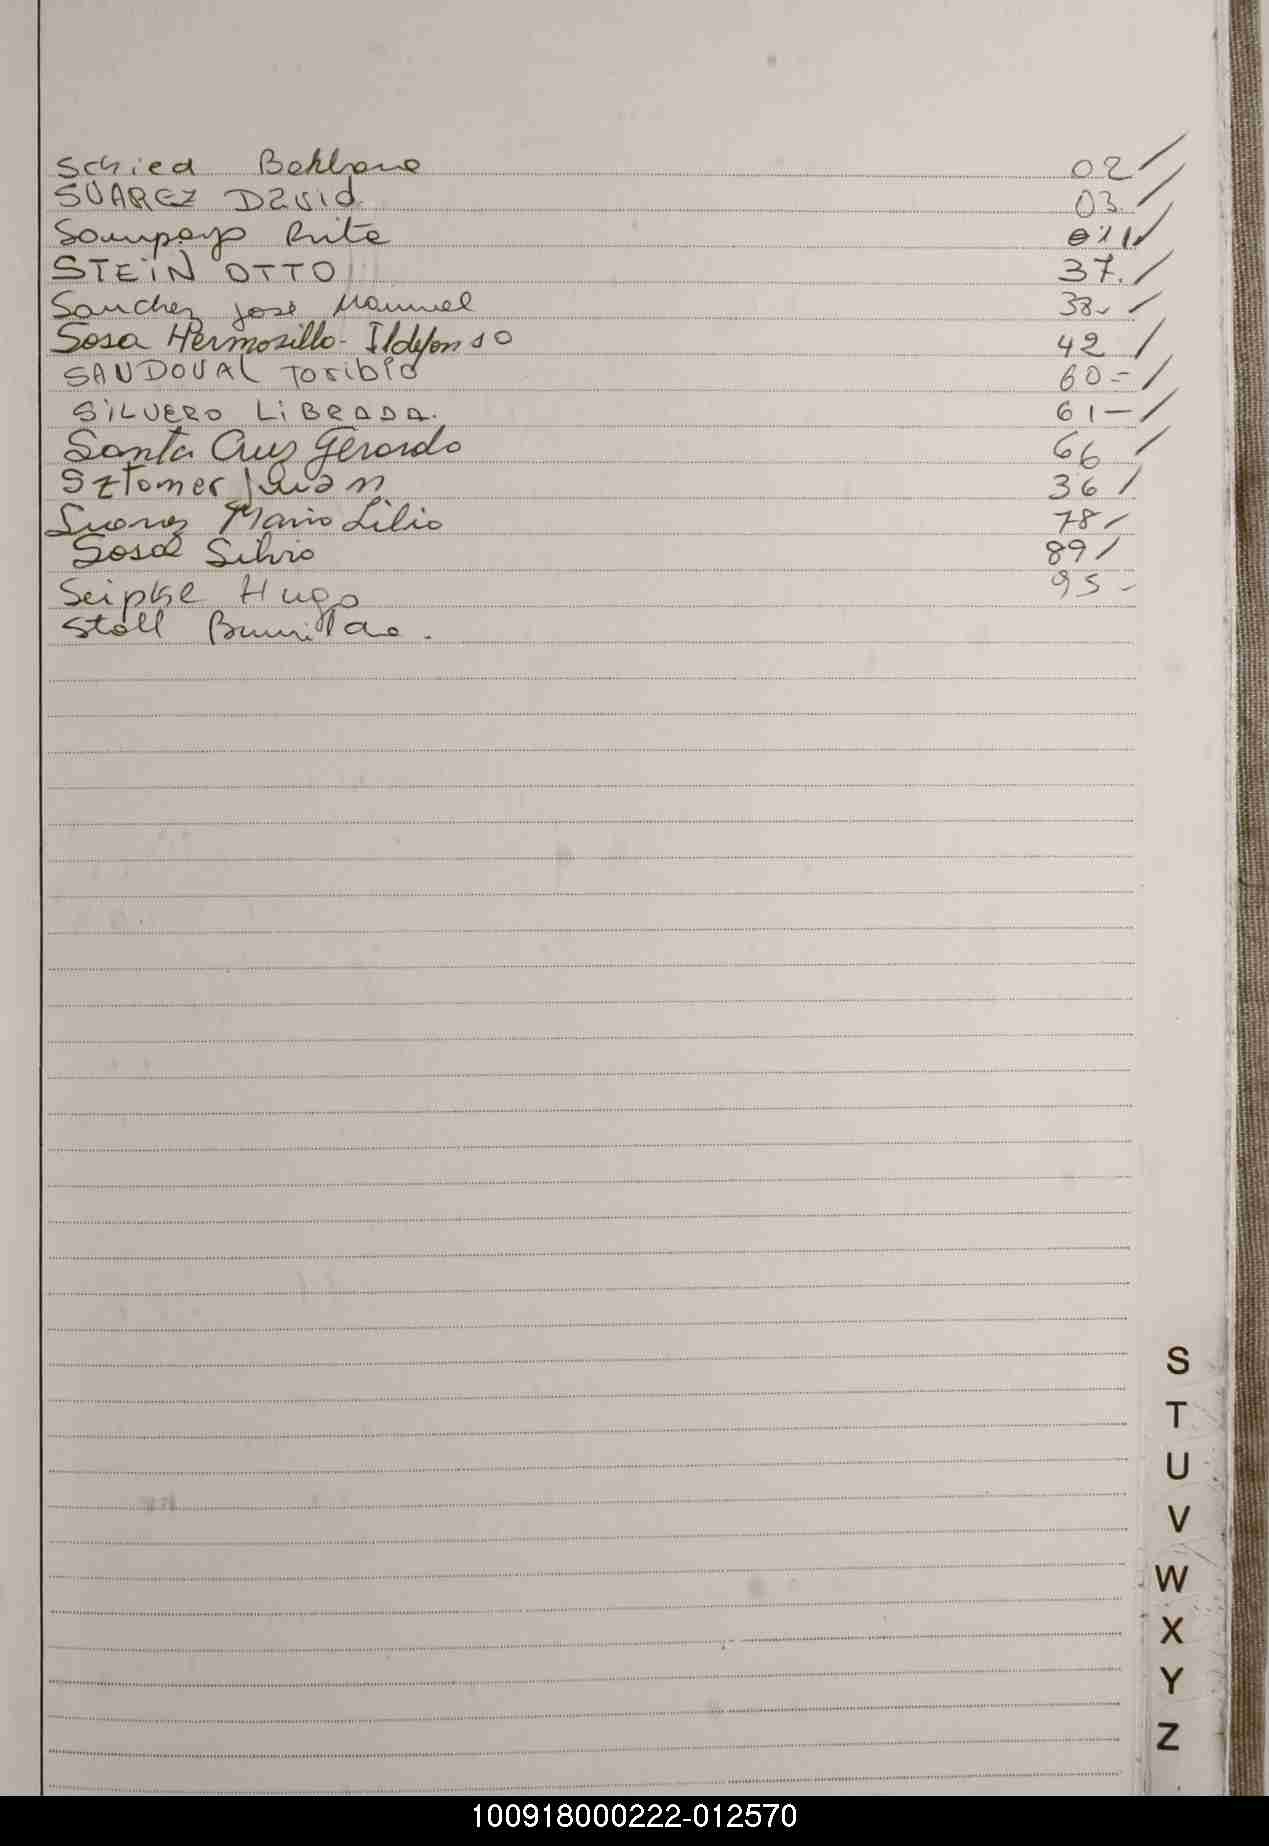 Schied 02
SUAREZ David 03
Sampayo Rita
STEIN OTTO 37.
Sanchez José Manuel 38
Sosa Hermosilla - Ildefonso 42
SANDOVAL Toribio 60 -
SILVERO LIBRADA. 61 -
Santa Cruz Gerardo 66
Sztomer Juan 36
Suarez Mario Lilio 78
Sosa Silvio 89
Seipke Hugo 95 -
Stoll Brunilda.
S
T
U
V
W
X
Y
Z
100918000222-012570